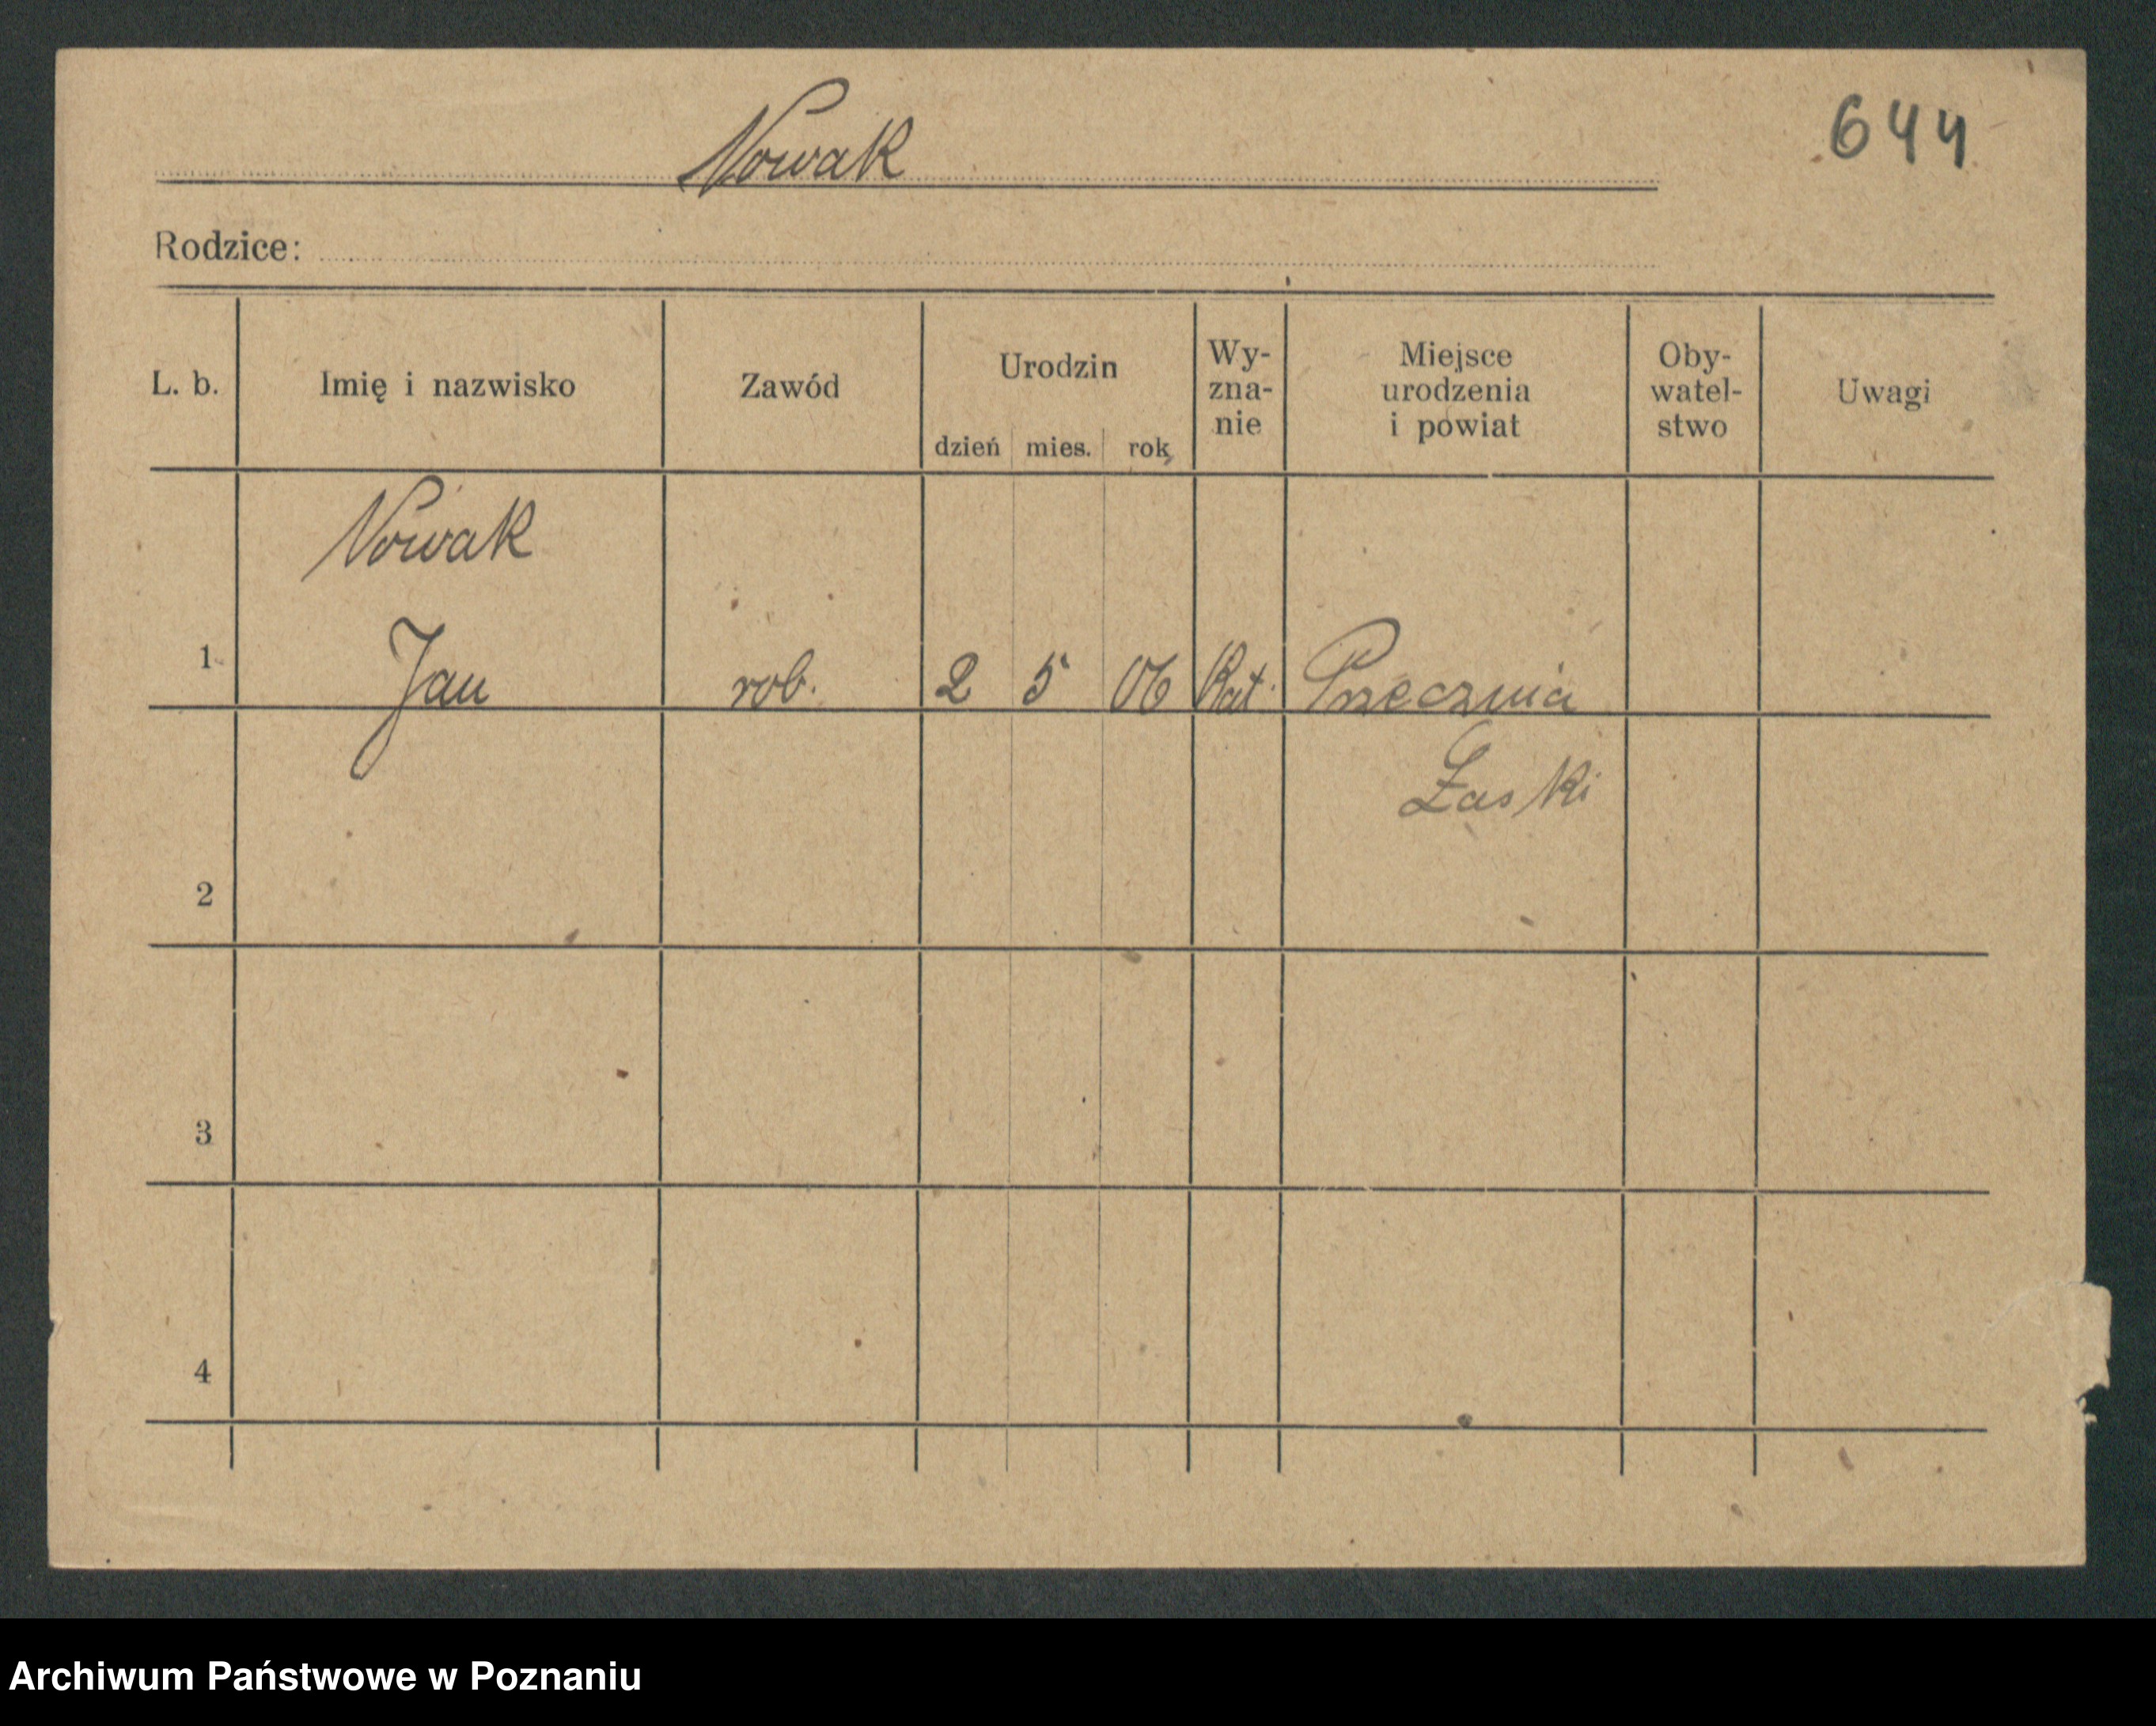 644
Nowak
Rodzice:
L. b. Imię i nazwisko Zawód Urodzin dzień mies. rok Wy-zna-nie Miejsce urodzenia i powiat Oby-watel-stwo Uwagi
Nowak
1 Jan rob. 2 5 06 Kat. Przecznia
Łaski
2
3
4
Archiwum Państwowe w Poznaniu